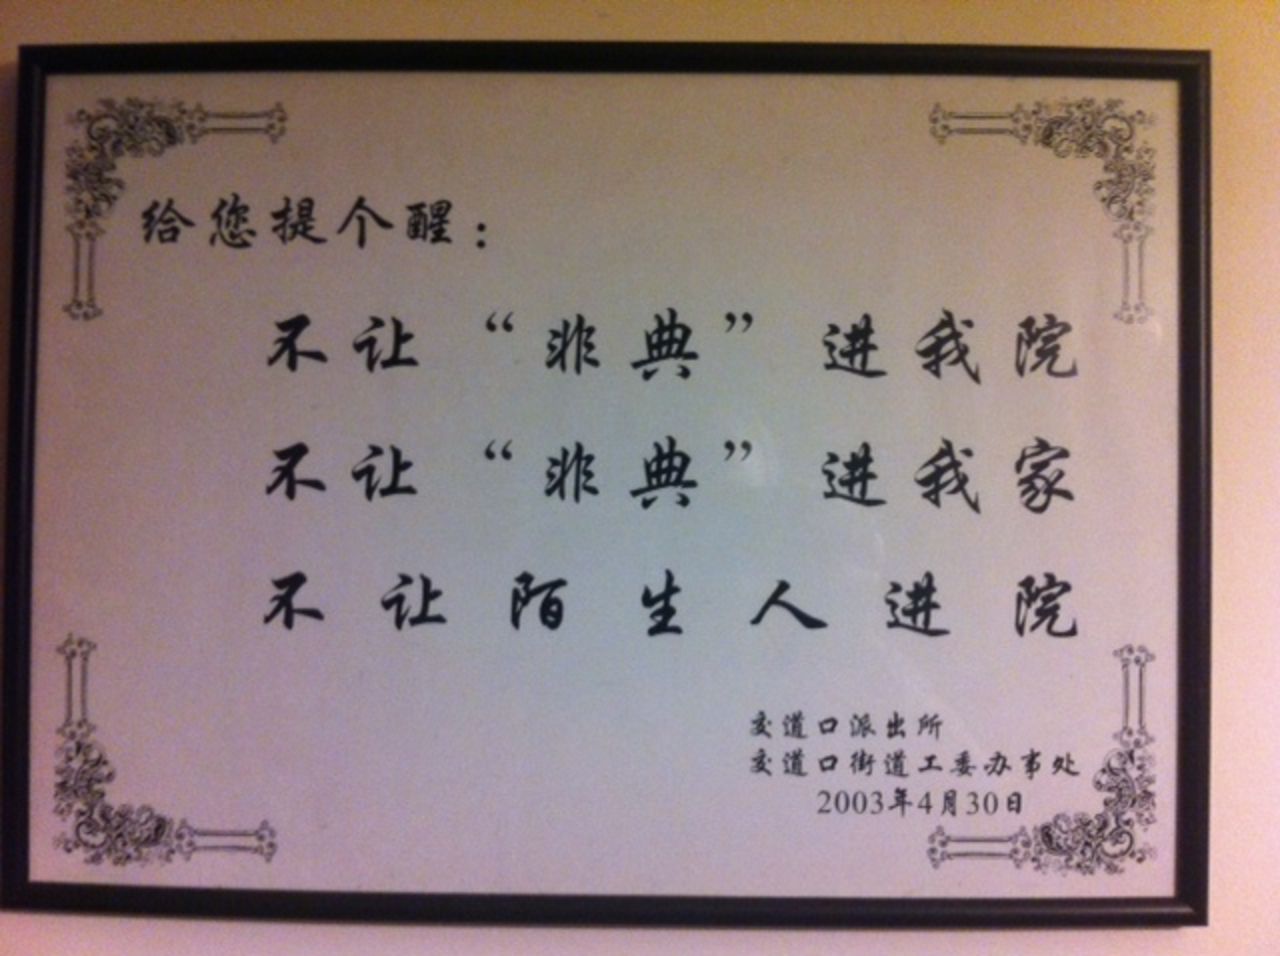 给您提个醒：
不让“非典”进我院
不让“非典”进我家
不让陌生人进院
交道口派出所
交道口街道工委办事处
2003年4月30日